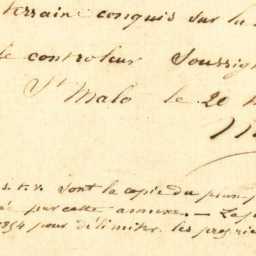 terrains conquis sur la
le controleur Soussig
St Malo le 20
sont la copie du plan
par cette annexe. — La p
1854 pour délimiter les propri